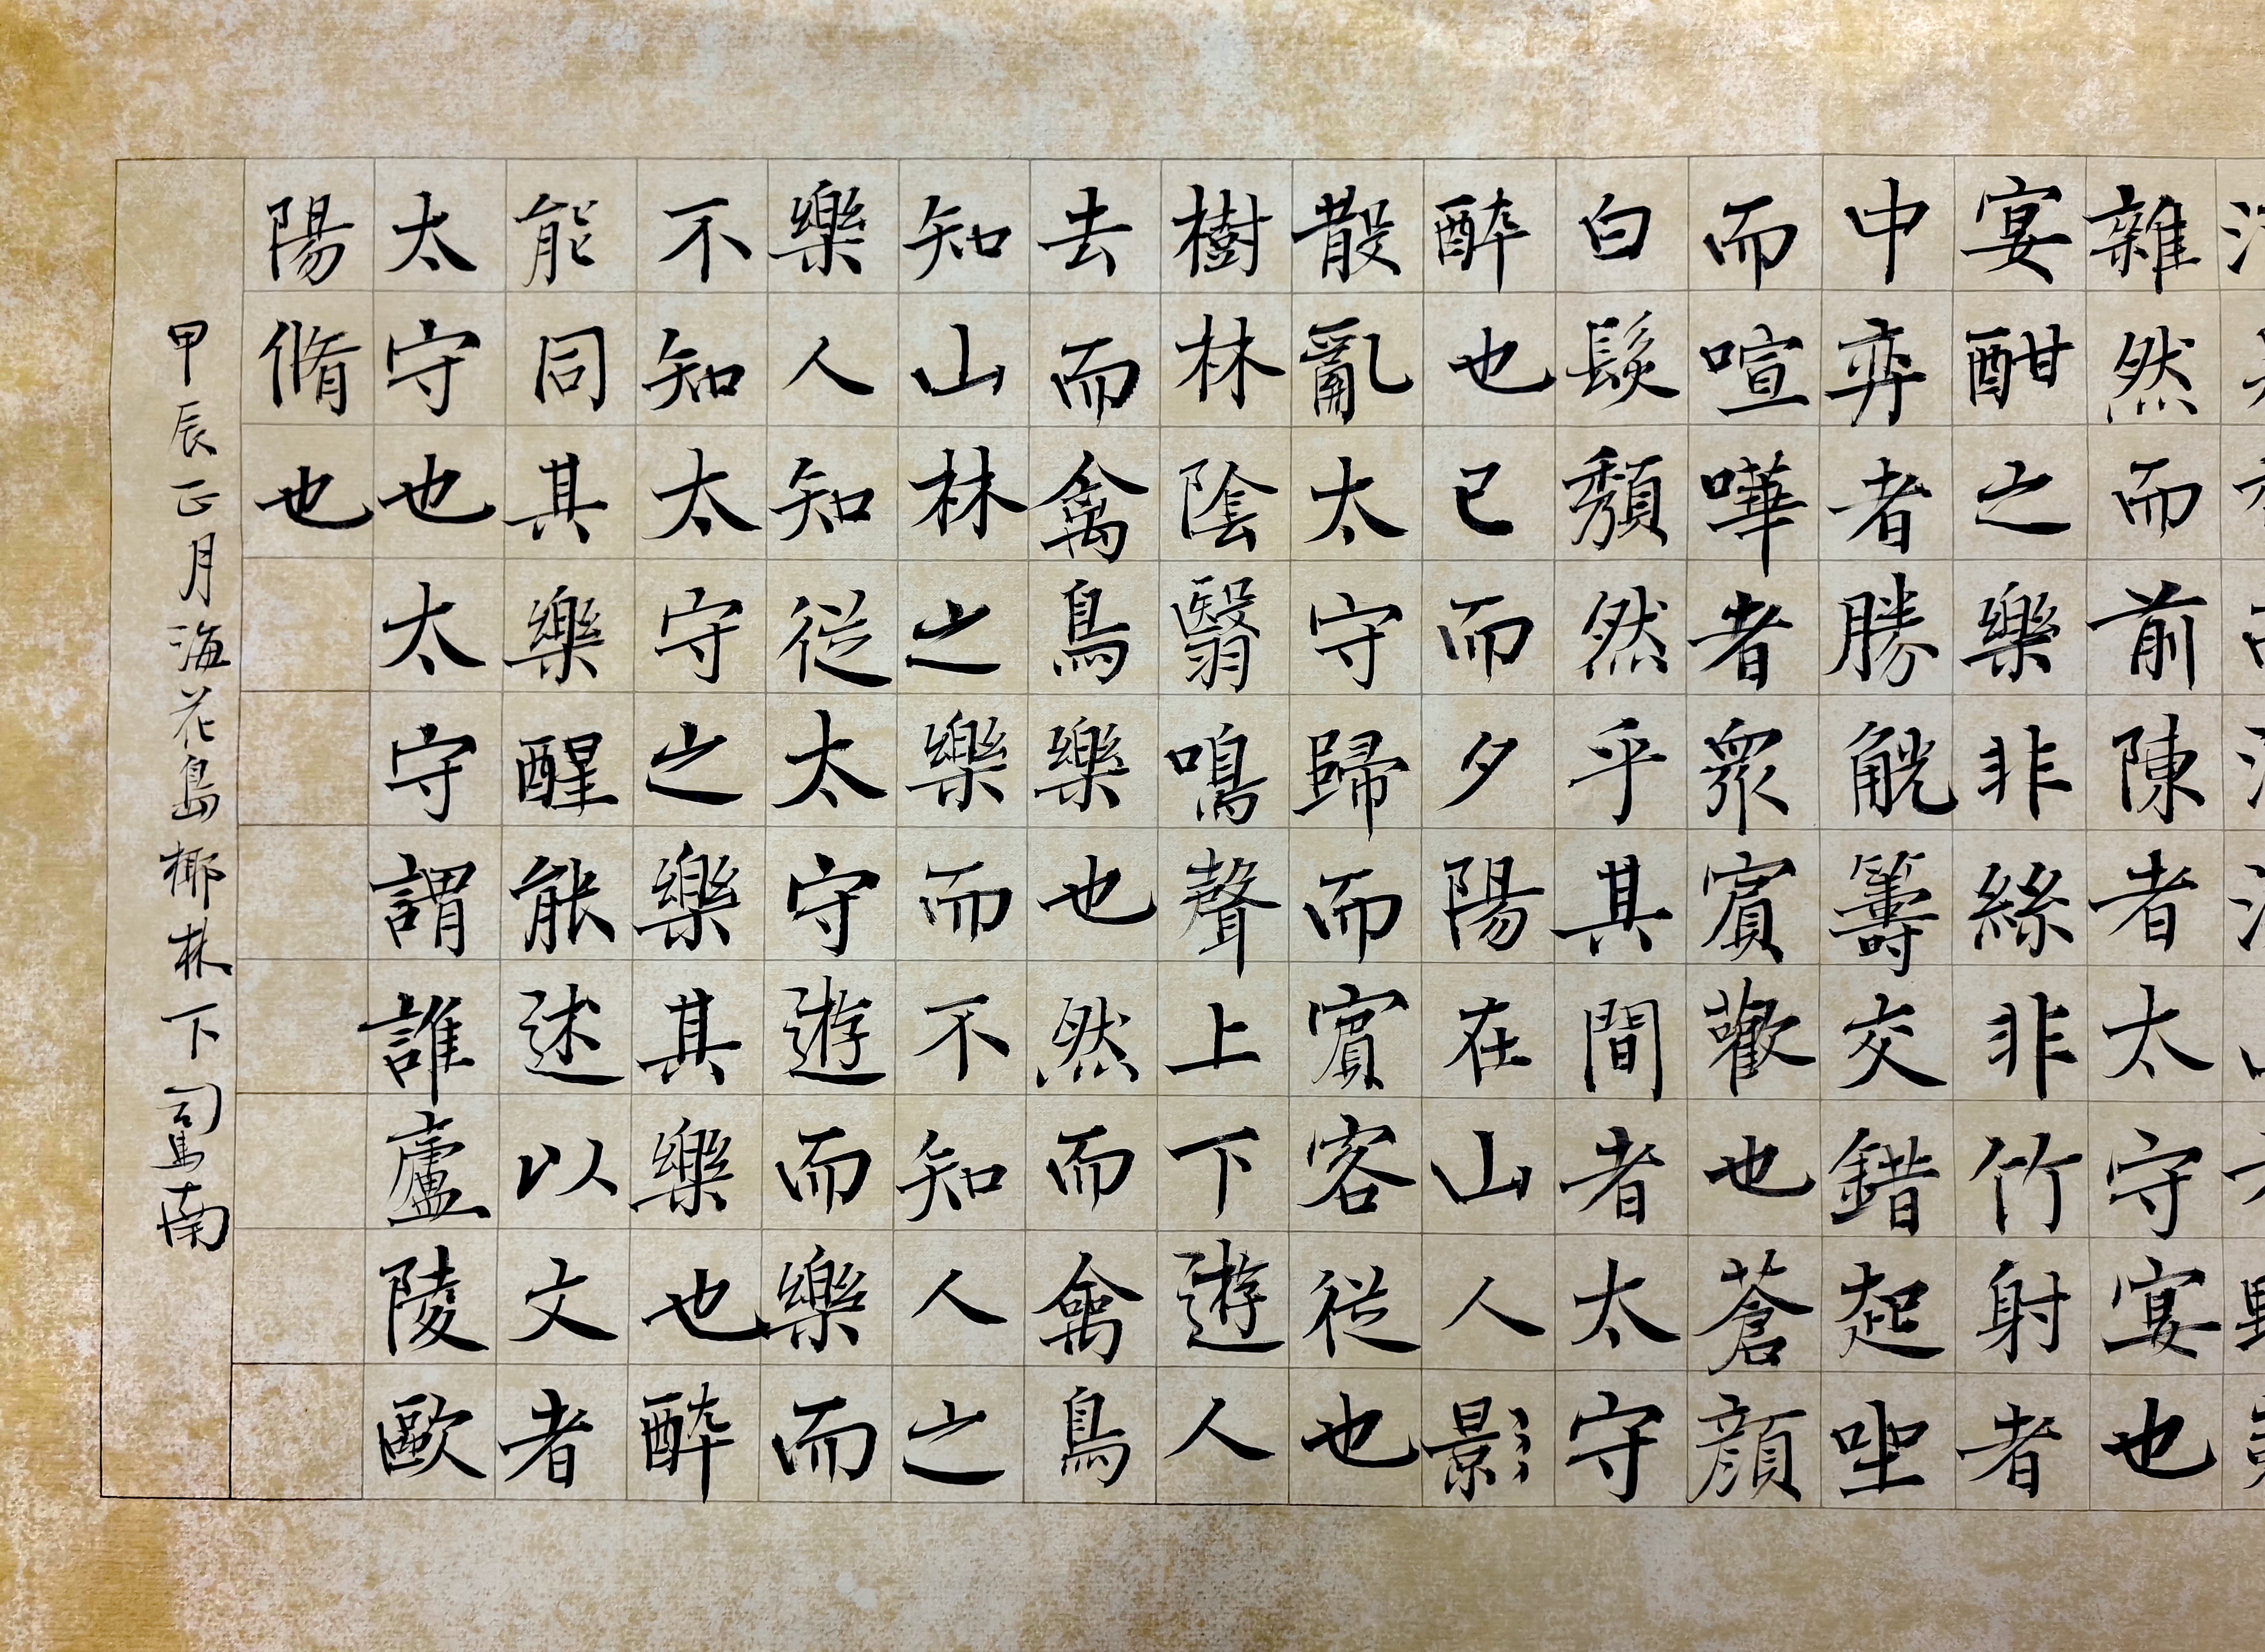 雜然而前陳者太守宴也
宴酣之樂非絲非竹射者
中弈者勝觥籌交錯起坐
而喧嘩者眾賓歡也蒼顏
白髮頹然乎其間者太守
醉也已而夕陽在山人影
散亂太守歸而賓客從也
樹林陰翳鳴聲上下遊人
去而禽鳥樂也然而禽鳥
知山林之樂而不知人之
樂人知從太守遊而樂而
不知太守之樂其樂也醉
能同其樂醒能述以文者
太守也太守謂誰廬陵歐
陽脩也
甲辰正月海花島椰林下司馬南